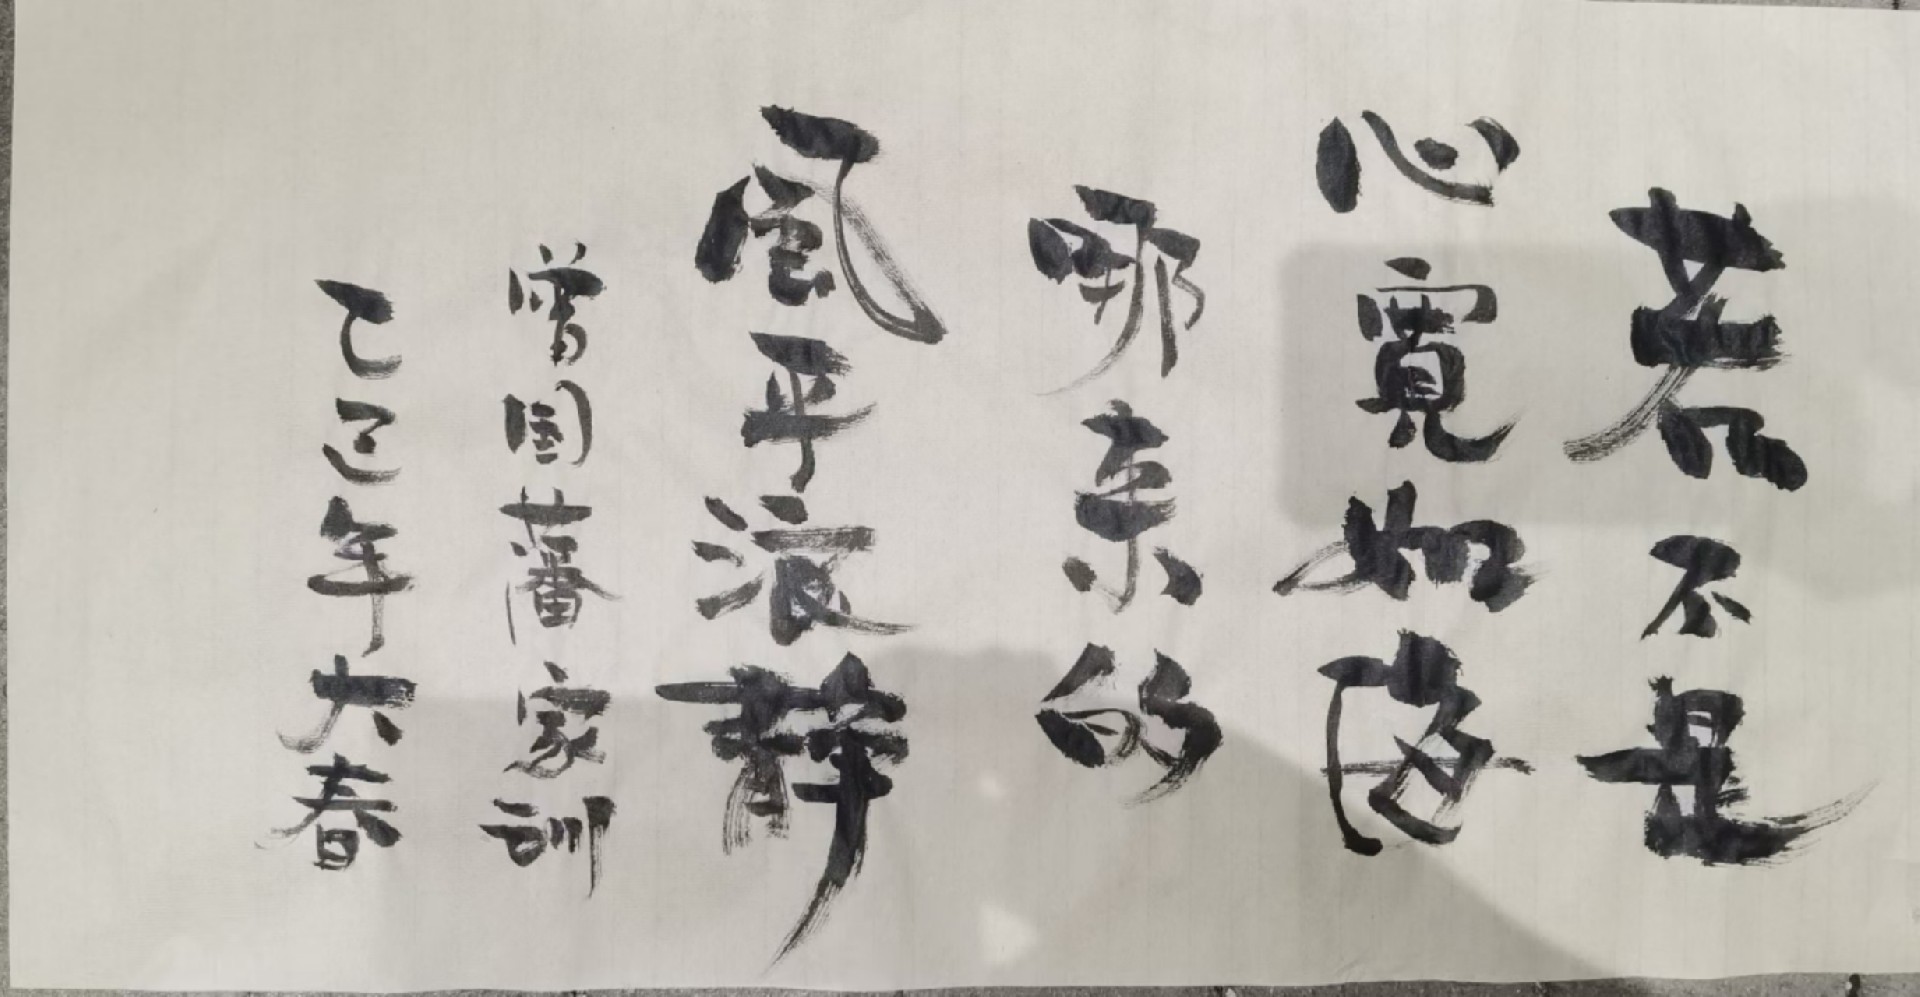 若不是
心寬如海
哪来的
風平浪靜
曾国藩家訓
乙巳年大春